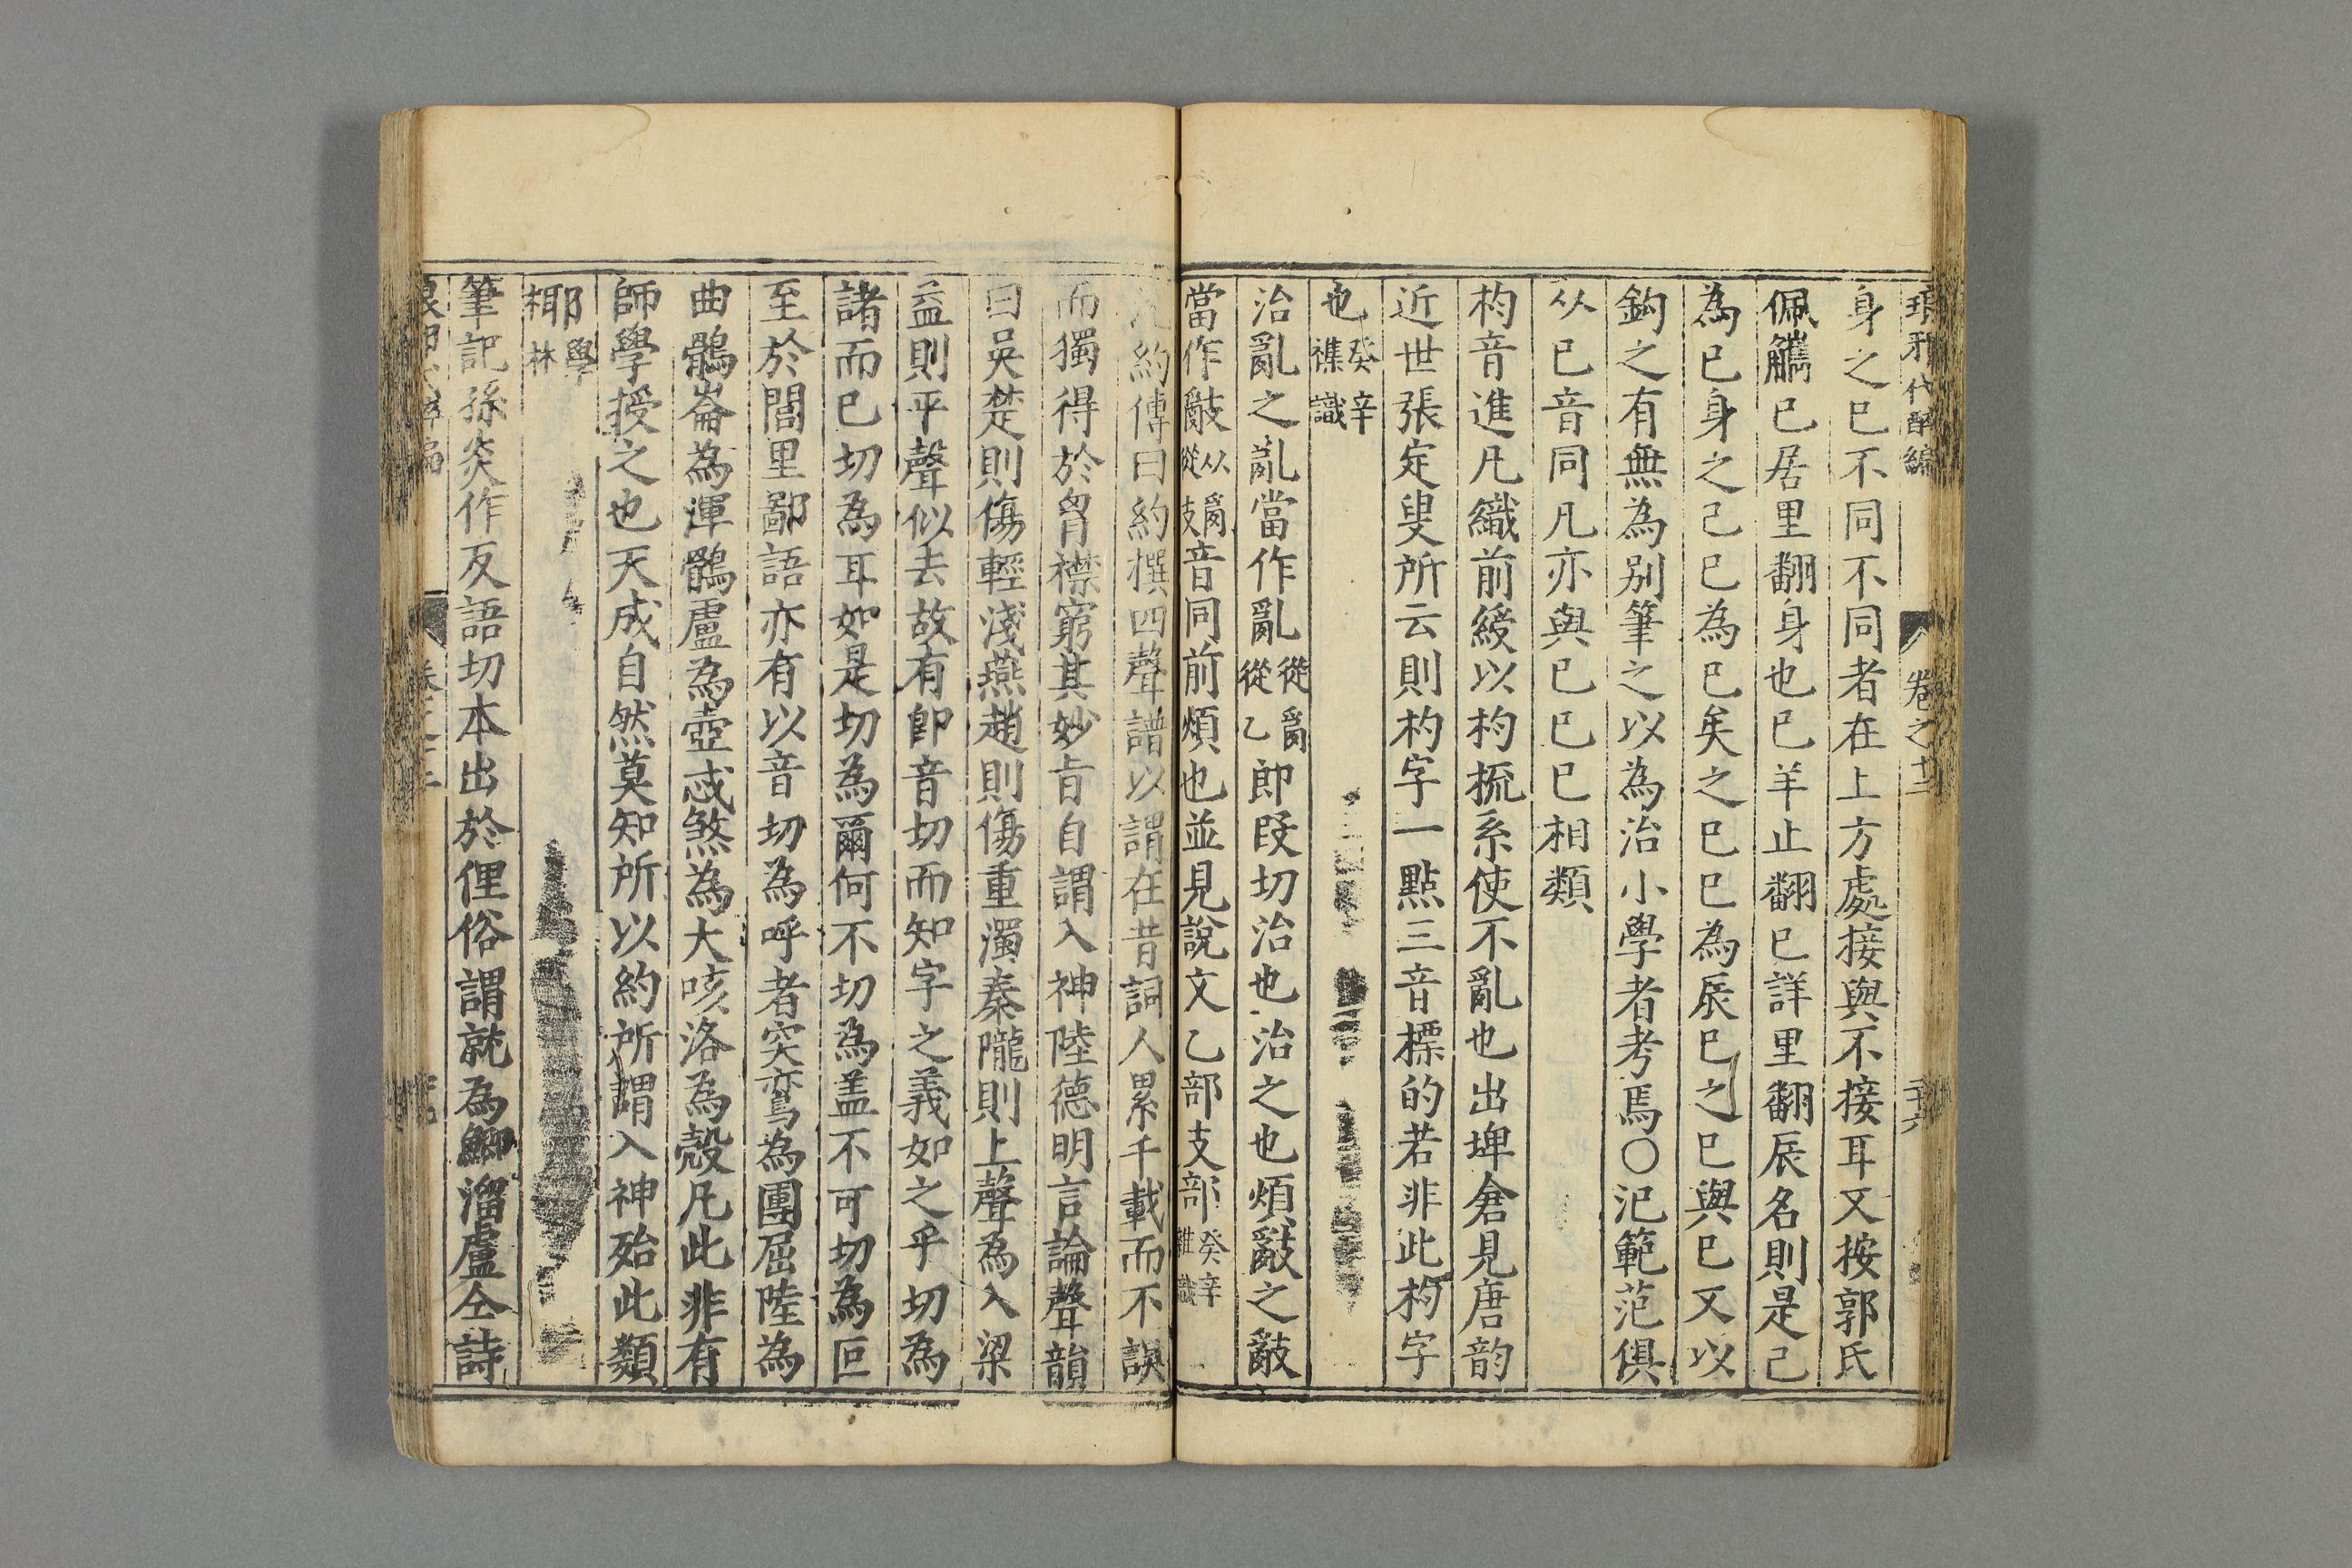 琅邪代醉編 卷之十二 二十六
身之巳不同不同者在上方處接與不接耳又按郭氏
佩觿巳居里翻身也巳羊止翻巳詳里翻辰名則是己
為已身之己已為已矣之巳巳為辰巳之巳與巳又以
鈎之有無為別筆之以為治小學者考焉○汜範范俱
从已音同凡亦與已巳已相類
杓音進凡織前綬以杓梳系使不亂也出埤倉見唐韵
近世張定叟所云則杓字一點三音標的若非此杓字
也癸辛襍識
治亂之亂當作亂從𤔔從乙郎段切治也治之也煩敽之敽
當作敽从𤔔從攴音同前煩也並見說文乙部支部癸辛雜識
沈約傳曰約撰四聲譜以謂在昔詞人累千載而不誤
而獨得於胷襟窮其妙旨自謂入神陸德明言論聲韻
曰吳楚則傷輕淺燕趙則傷重濁秦隴則上聲為入梁
益則平聲似去故有卽音切而知字之義如之乎切為
諸而已切為耳如是切為爾何不切為盖不可切為叵
至於閭里鄙語亦有以音切為呼者突鸞為團屈陸為
曲鶻崙為渾鶻盧為壺忒煞為大咳洛為殼凡此非有
師學授之也天成自然莫知所以約所謂入神殆此類
耶學林
筆記孫炎作反語切本出於俚俗謂就為鯽溜盧仝詩